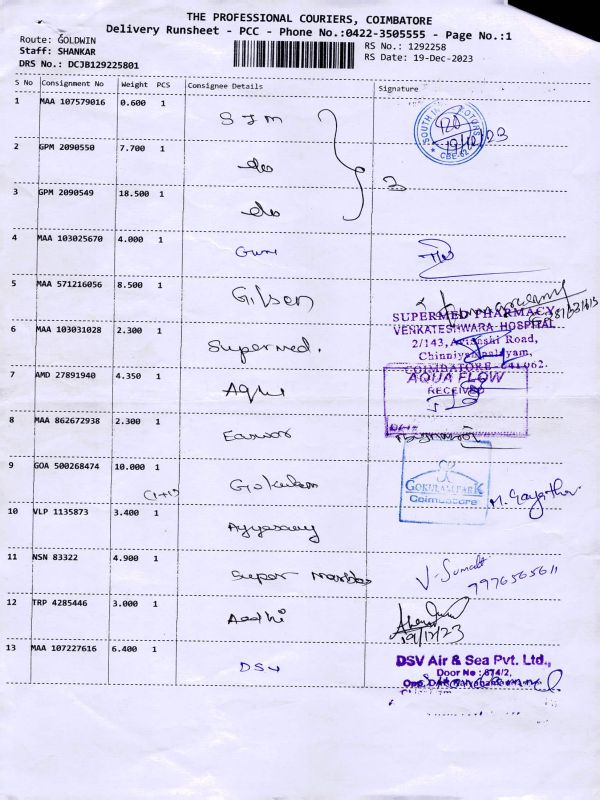 THE PROFESSIONAL COURIERS, COIMBATORE
Delivery Runsheet - PCC - Phone No.:0422-3505555 - Page No.:1
Route: GOLDWIN
Staff: SHANKAR
DRS No.: DCJB129225801
RS No.: 1292258
RS Date: 19-Dec-2023
S No Consignment No Weight PCS Consignee Details Signature
1 MAA 107579016 0.600 1 SJM
SOUTH
19/12/23
2 GPM 2090550 7.700 1 do
3 GPM 2090549 18.500 1 do
4 MAA 103025670 4.000 1 Guru
5 MAA 571216056 8.500 1 Gibson
SUPERMED PHARMACY
VENKATESHWARA HOSPITAL
6 MAA 103031028 2.300 1 Supermed.
2/143, Road,
COIMBATORE - 641 062.
7 AMD 27891940 4.350 1
AQUA FLOW
RECEIVED
8 MAA 862672938 2.300 1
9 GOA 500268474 10.000 1 Gokulam
GOKULAM PARK
Coimbatore
M. Gayathri
(1+1)
10 VLP 1135873 3.400 1 Ayyasamy
11 NSN 83322 4.900 1 Super
7976565611
12 TRP 4285446 3.000 1 Aadhi
19/12/23
13 MAA 107227616 6.400 1 DSV
DSV Air & Sea Pvt. Ltd.,
Door No : 674/2,